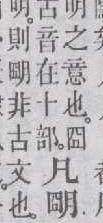 明之意也。囧
古音在十部。
凡朙
明。則朙非古文也。